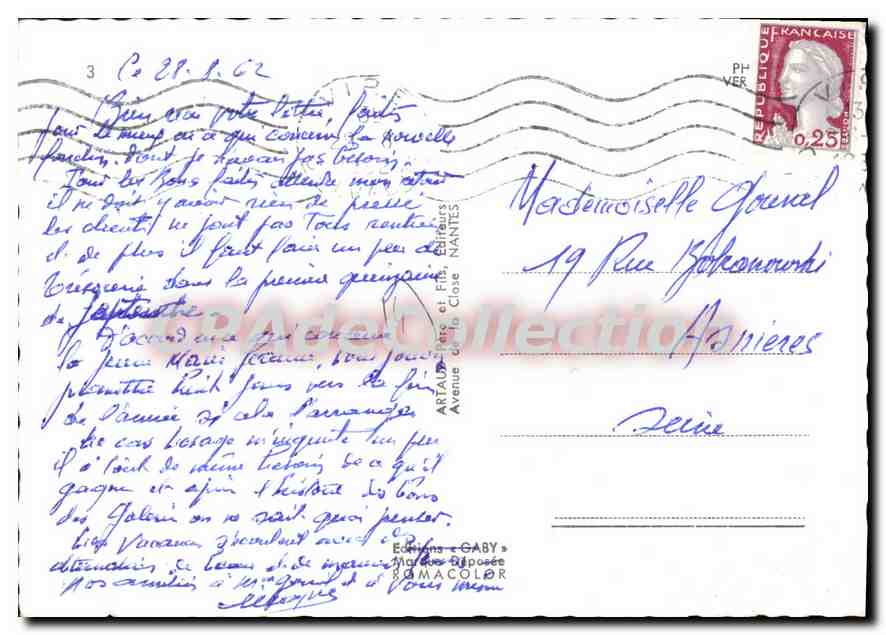 3
Ce 28.8.62
Bien reçu votre lettre, faites
pour le mieux en ce qui concerne la nouvelle
dont je n'avais pas besoin.
Pour les bons faites attendre mon retour
il ne doit y avoir rien de pressé
les clients ne sont pas tous rentrés
et de plus il faut faire un peu de
trésorerie dans la première quinzaine
de septembre.
D'accord en ce qui concerne
la jeune Marie Jeanne, vous pouvez
promettre huit jours vers la fin
de l'année si cela l'arrange
Le cas Lesage m'inquiète un peu
il a tout de même besoin de ce qu'il
gagne et après l'histoire des bons
des on ne sait quoi penser.
Les vacances s'écoulent avec des
alternatives de beau et de mauvais
Nos amitiés à et à vous même
PH
VER
REPUBLIQUE FRANÇAISE
0,25
ARTAUD Père et Fils, Editeurs
Avenue de la Close NANTES
Mademoiselle
19 Rue Bokanowski
Asnières
Seine
Editions « GABY »
Marque Déposée
ROMACOLOR
CPAdeCollection